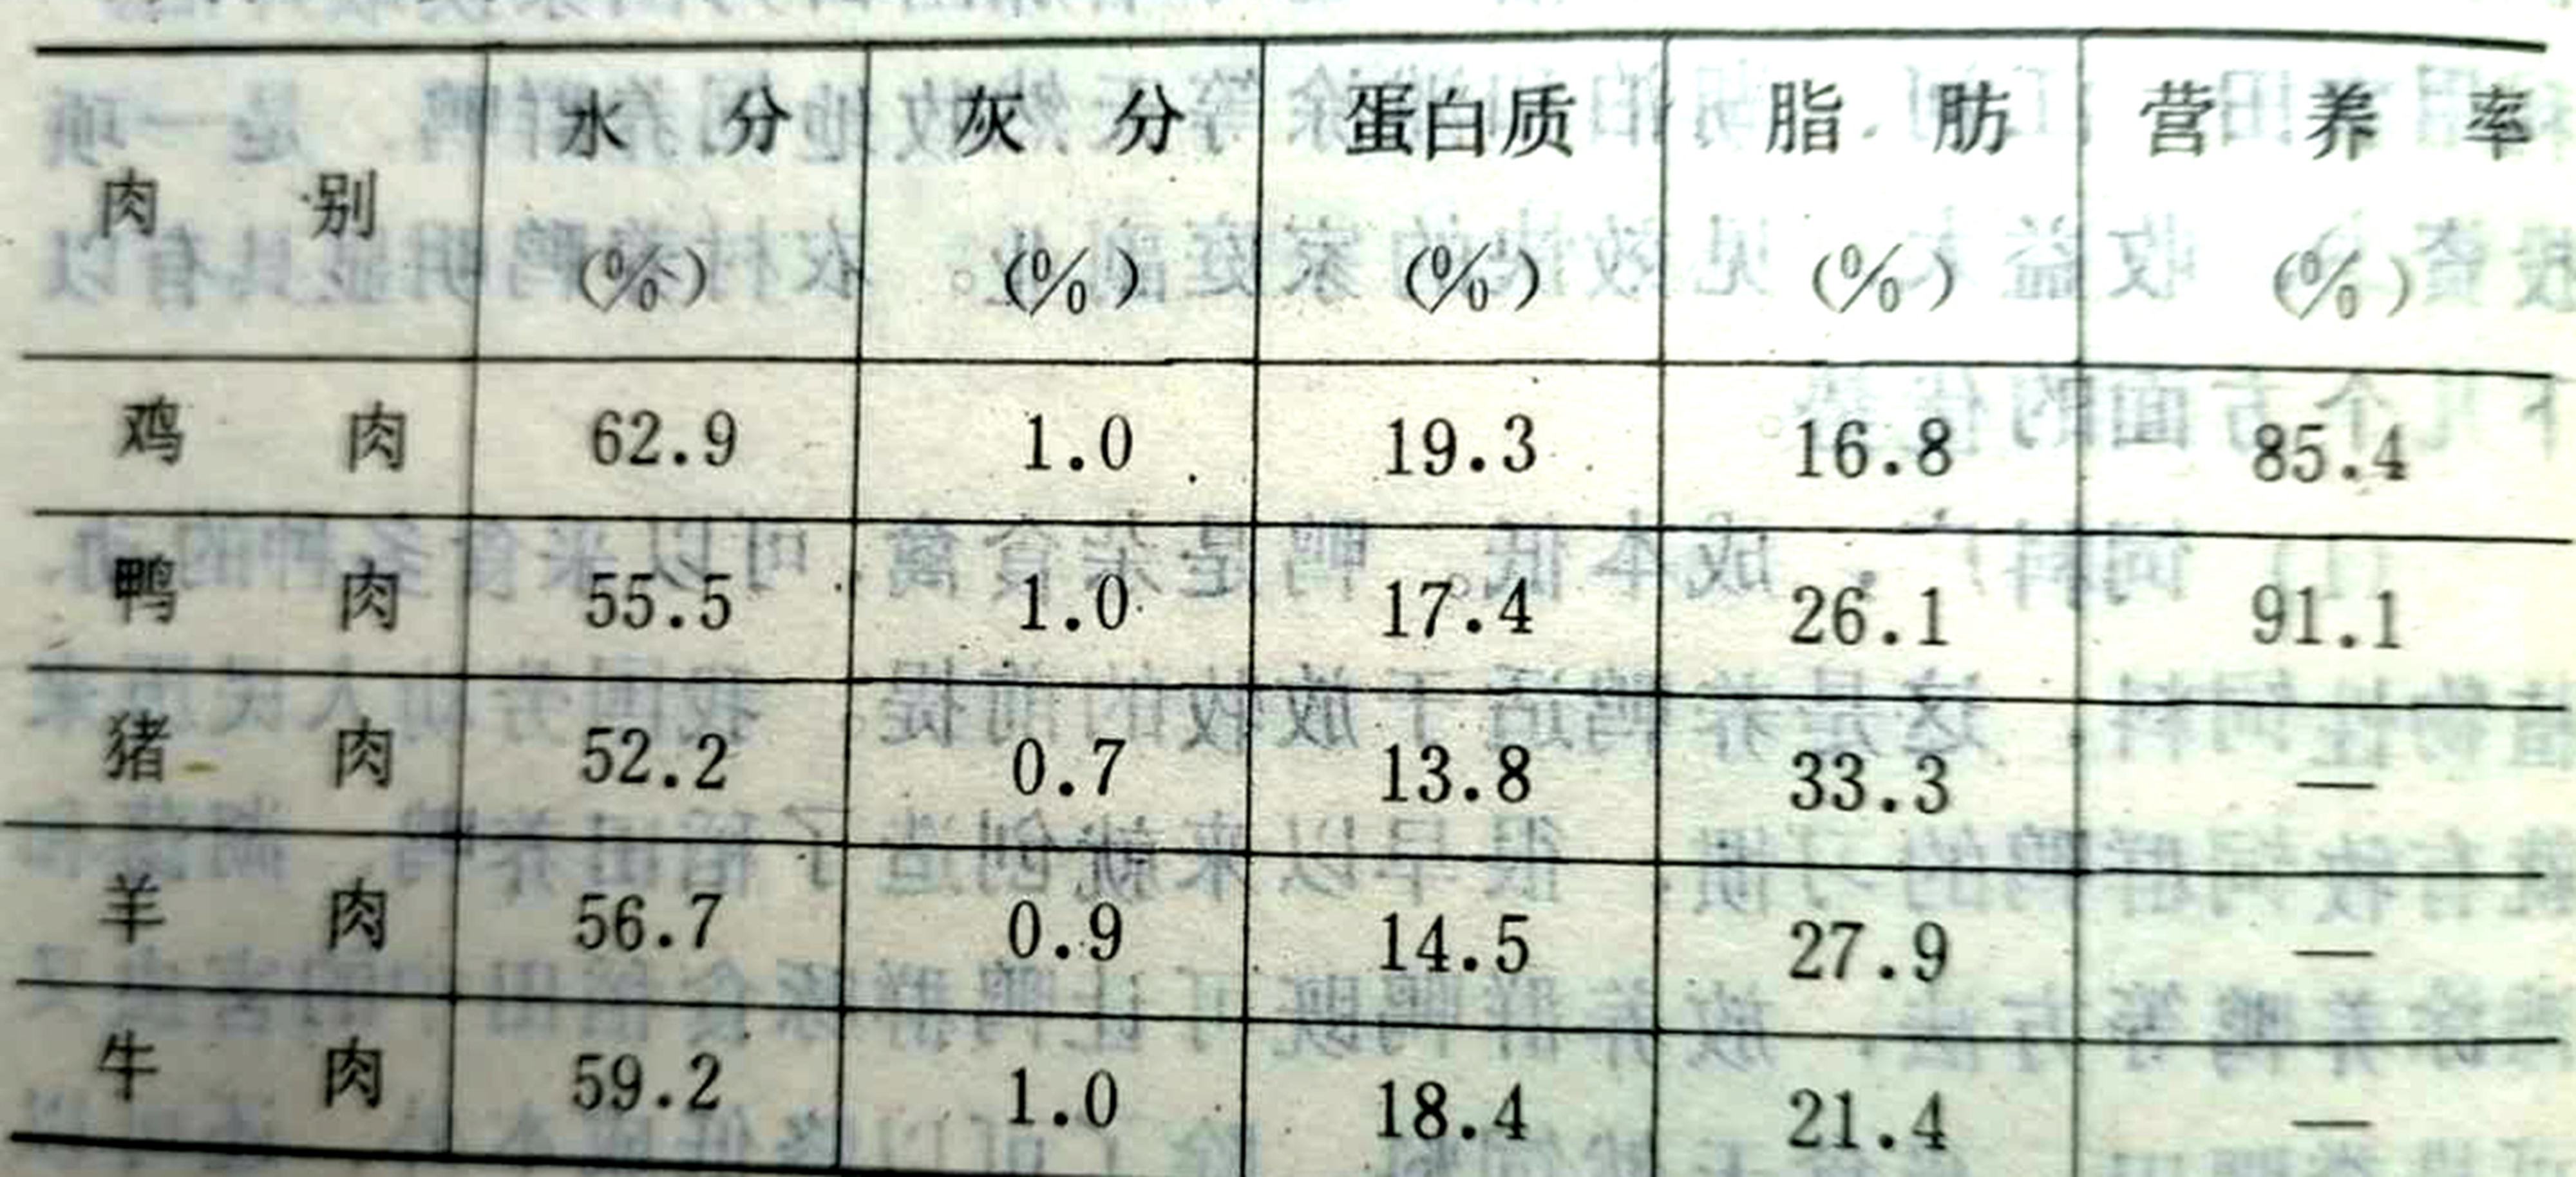 肉别 水分(%) 灰分(%) 蛋白质(%) 脂肪(%) 营养率(%)
鸡肉 62.9 1.0 19.3 16.8 85.4
鸭肉 55.5 1.0 17.4 26.1 91.1
猪肉 52.2 0.7 13.8 33.3 —
羊肉 56.7 0.9 14.5 27.9 —
牛肉 59.2 1.0 18.4 21.4 —